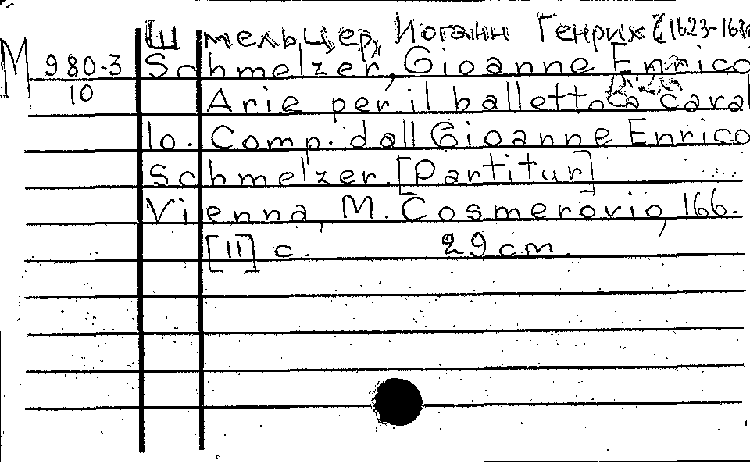 Шмельцер, Иоганн Генрих (1623-168
M 980-3 Schmelzer, Gioanne Enrico
10 Arie per il balletto a caval
lo. Comp. dall Gioanne Enrico
Schmelzer. [Partitur]
Vienna, M. Cosmerovio, 166.
[11] c. 29 cm.